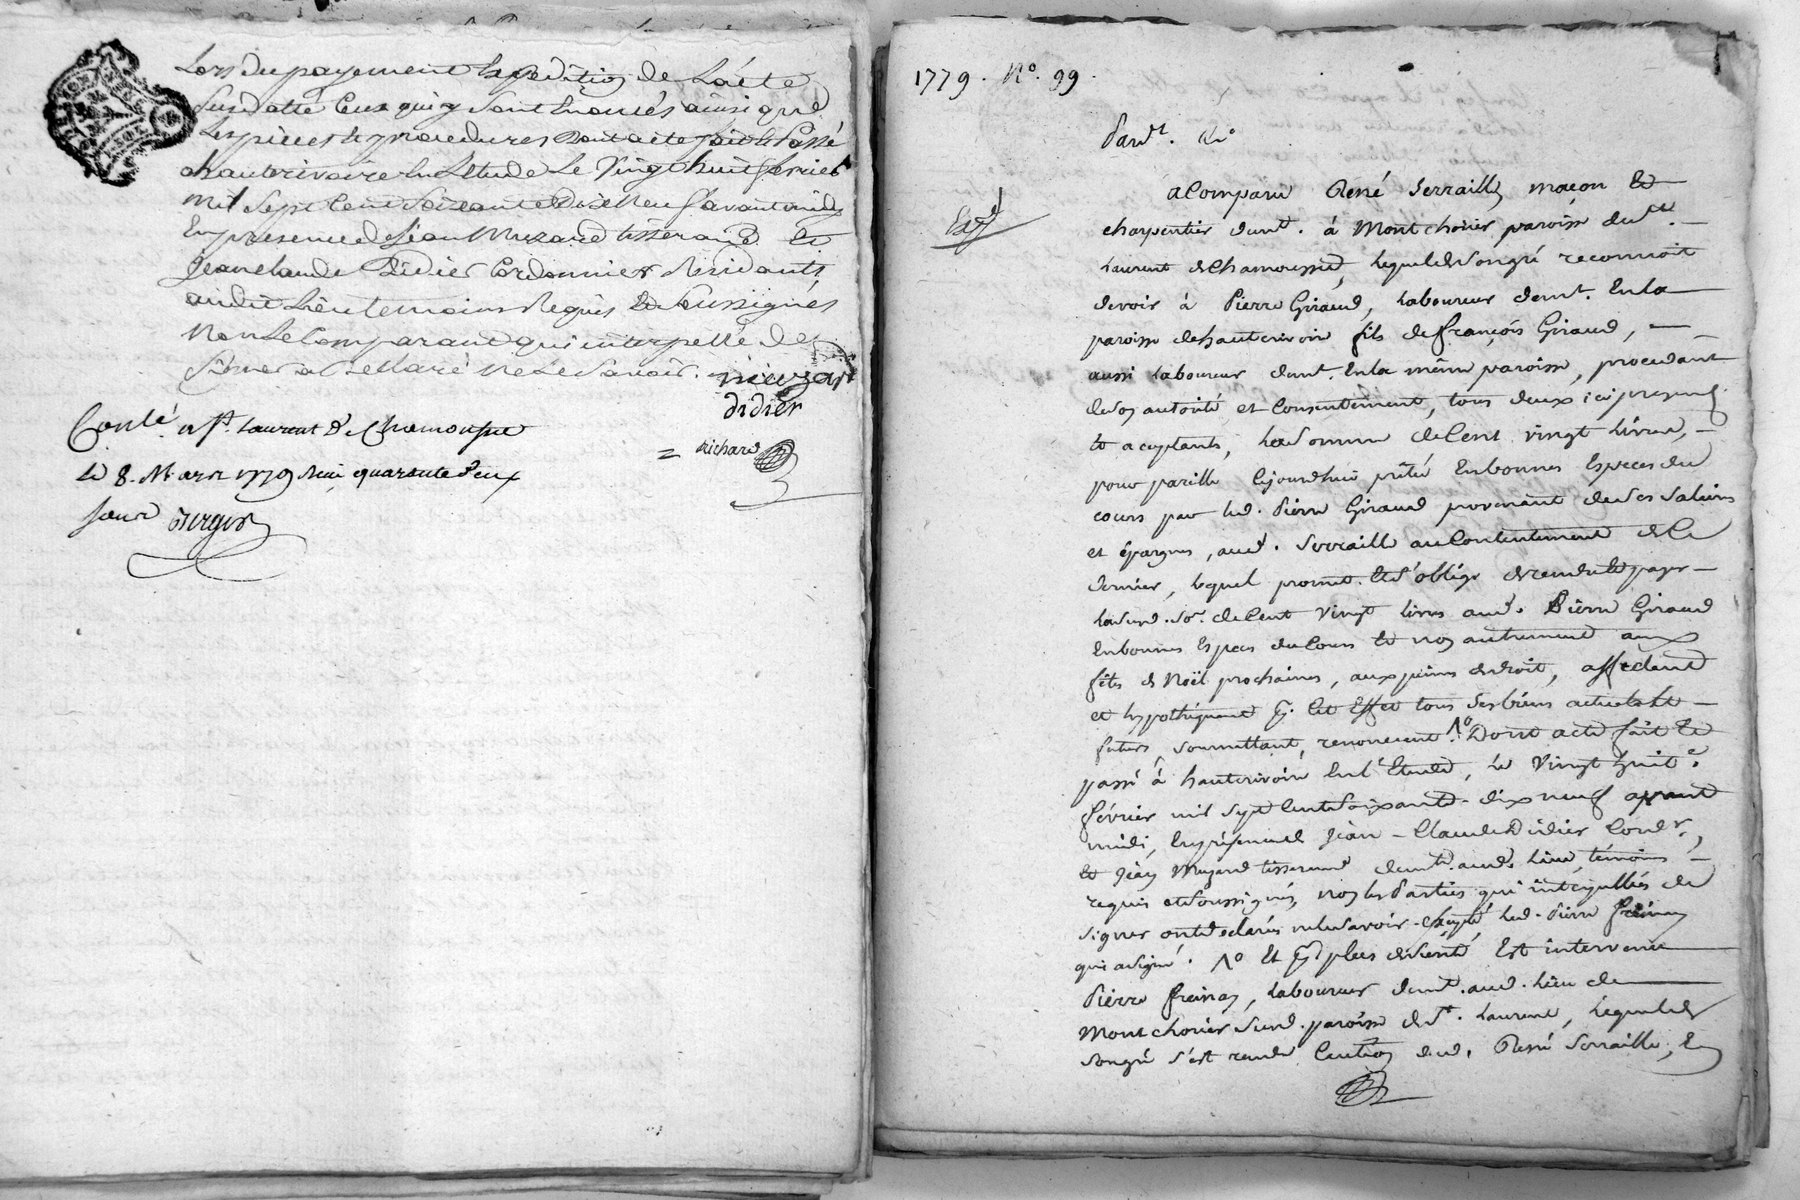 Lors du payement Expedition de L'acte
susdatté Ceux qui y sont Enoncés ainsi que
Les pièces et procedures Dont acte fait et Passé
a hauterivoire En L'Etude Le Vingt huit fevrier
mil Sept Cent Soixante Dix Neuf avant midy
En presence de Jean Muzard tisserand et
Jean Claude Didier Cordonnier Residants
audit Lieu temoins Requis et Soussignés
Non Le Comparand qui interpellé de
Signer a Declaré Ne Le Savoir. muzard
didier
= Richard
Conlé a St. Laurent De Chamousset
le 8. Mars 1779 Reçu quarante deux
sous
1779. No. 99.
Pardt. &c
Expé
a Comparu René Serraille maçon et
charpentier demt. à Montchorier paroisse de St. —
Laurent de Chamousset, lequel de son gré reconnoit
devoir à Pierre Giraud, laboureur demt. En la —
paroisse de hauterivoire fils de françois Giraud, —
aussi laboureur demt. En la même paroisse, procedant
de son autorité et Consentement, tous deux ici presents
et aceptants, la Somme de Cent vingt livres, —
pour pareille Cejourdhui prêtée En bonnes Especes du
cours par led. Pierre Giraud provenant de Ses Salaires
et épargnes, aud. Serraille au Contentement de Ce
dernier, lequel promet et s'oblige de rendre et payer —
lasusd. So. de Cent vingt livres aud. Pierre Giraud
En bonnes Espèces du Cours et non autrement aux
fêtes de Noël prochaines, aux peines de droit, affectant
et hypothéquant pr. Cet Effet tous Ses biens actuels et —
futurs, soumettant, renonceant. Dont acte fait et
passé à hauterivoire En l'Etude, le vingt huit
février mil sept Cent soixante-dix neuf avant
midi, En présence de Jean-Claude Didier Cordr.,
et Jean Muzard tisserand demt. aud. lieu, témoins —
requis et Soussignés, non les Parties qui interpellées de
signer ont declarés ne le Savoir. Excepté led. Pierre freinay
qui a signé. Et pr plus de Sureté Est intervenu
Pierre freinay, laboureur demt. aud. lieu de
Montchorier Susd. paroisse de St. Laurent, lequel de
Songré s'est rendu Caution dud. René Serraille, En